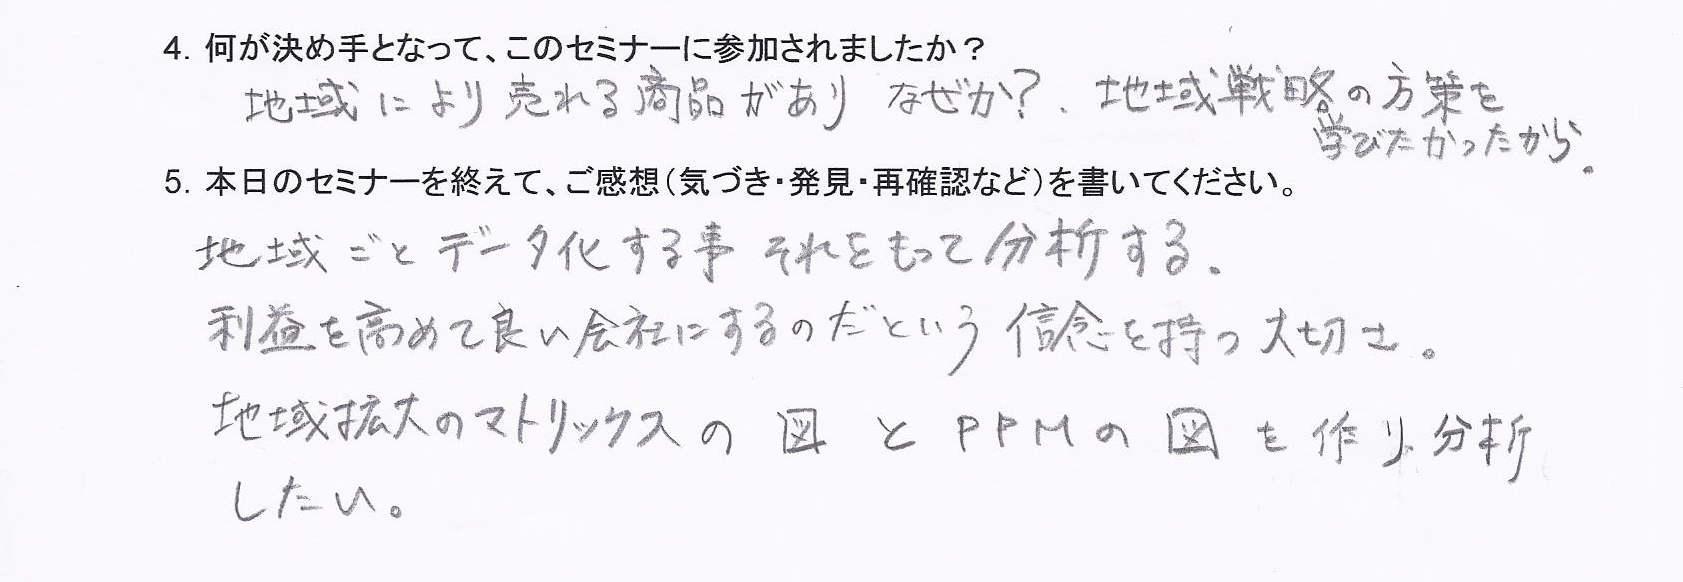 4. 何が決め手となって、このセミナーに参加されましたか？
地域により売れる商品があり なぜか？. 地域戦略の方策を
学びたかったから.
5. 本日のセミナーを終えて、ご感想(気づき・発見・再確認など)を書いてください。
地域ごとデータ化する事 それをもって分析する.
利益を高めて良い会社にするのだという 信念を持つ大切さ。
地域拡大のマトリックスの 図 と PPMの 図 を 作り、分析
したい。